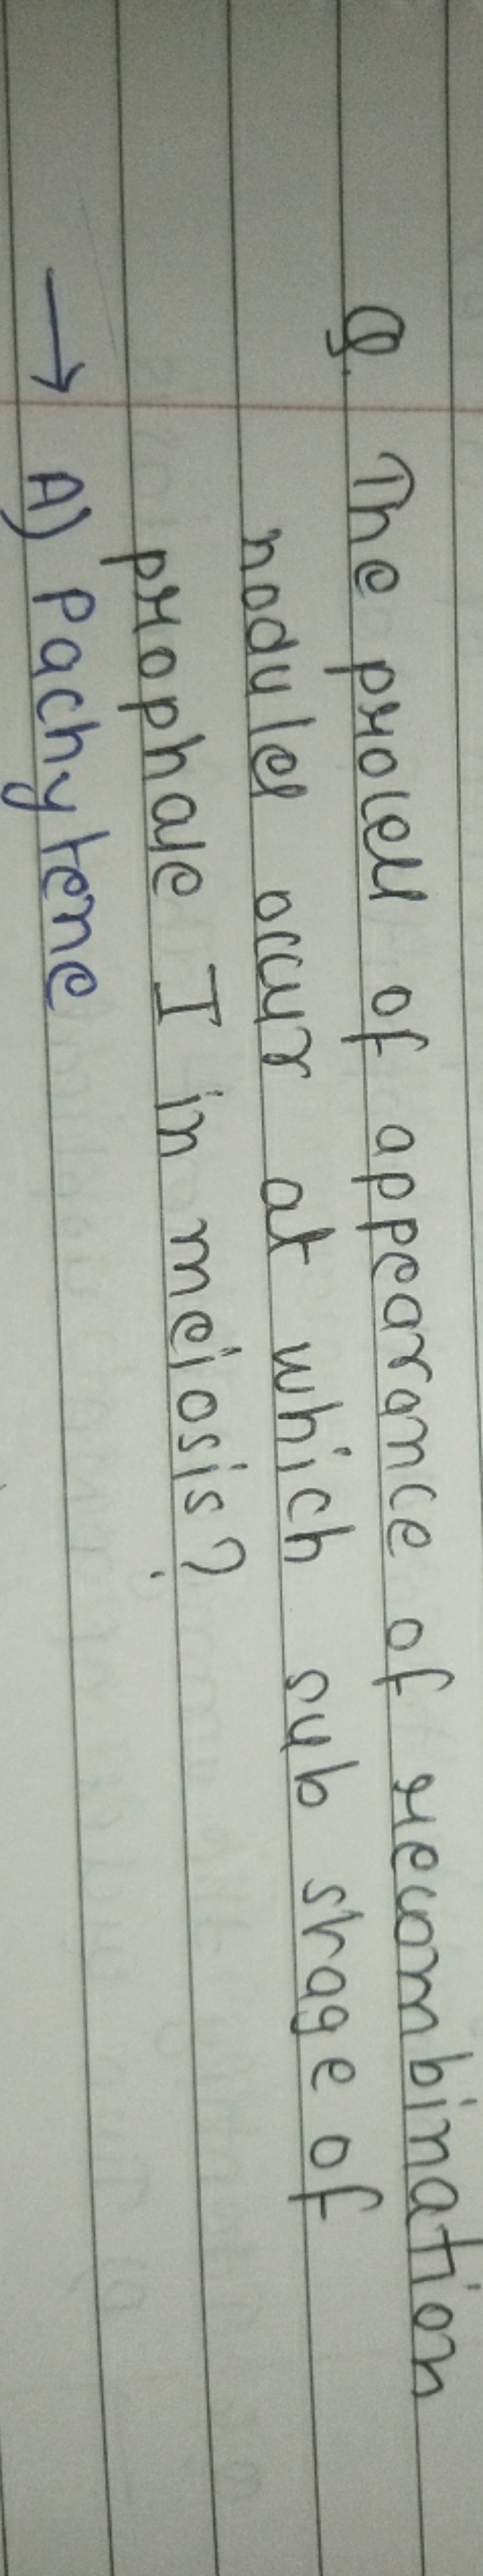 Q. The process of appearance of recombination
nodules occur at which sub stage of
prophase I in meiosis?
→ A) Pachytene